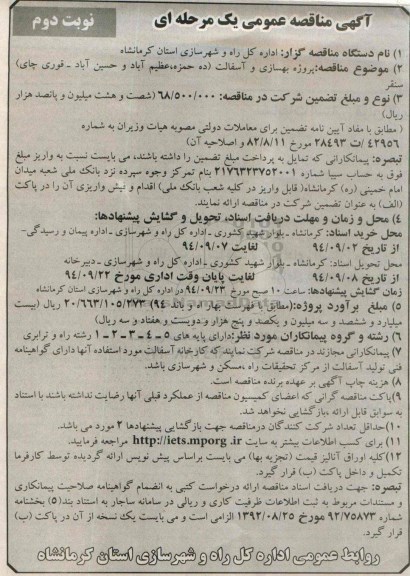 آگهی مناقصه عمومی یک مرحله ای
نوبت دوم
۱) نام دستگاه مناقصه گزار: اداره کل راه و شهرسازی استان کرمانشاه
۲) موضوع مناقصه: پروژه بهسازی و آسفالت (ده حمزه،عظیم آباد و حسین آباد ـ قوری چای)
سنقر
۳) نوع و مبلغ تضمین شرکت در مناقصه: ۶۸/۵۰۰/۰۰۰ (شصت و هشت میلیون و پانصد هزار
ریال)
( مطابق با مفاد آیین نامه تضمین برای معاملات دولتی مصوبه هیات وزیران به شماره
۴۲۹۵۶ /ت ۲۸۴۹۳ مورخ ۸۲/۸/۱۱ و اصلاحیه آن)
تبصره: پیمانکارانی که تمایل به پرداخت مبلغ تضمین را داشته باشند، می بایست نسبت به واریز مبلغ
فوق به حساب سیبا شماره ۲۱۷۶۴۲۳۷۵۲۰۰۱ بنام تمرکز وجوه سپرده نزد بانک ملی شعبه میدان
امام خمینی (ره) کرمانشاه( قابل واریز در کلیه شعب بانک ملی) اقدام و فیش واریزی آن را در پاکت
(الف) به عنوان تضمین شرکت در مناقصه ارائه نمایند.
۴) محل و زمان و مهلت دریافت اسناد، تحویل و گشایش پیشنهادها:
محل خرید اسناد: کرمانشاه ـ بلوار شهید کشوری ـ اداره کل راه و شهرسازی ـ اداره پیمان و رسیدگی-
از تاریخ ۹۴/۰۹/۰۲ لغایت ۹۴/۰۹/۰۷
محل تحویل اسناد: کرمانشاه ـ بلوار شهید کشوری ـ اداره کل راه و شهرسازی ـ دبیرخانه
از تاریخ ۹۴/۰۹/۰۸ لغایت پایان وقت اداری مورخ ۹۴/۰۹/۲۲
زمان گشایش پیشنهادها: ساعت ۱۰ صبح مورخ ۹۴/۰۹/۲۳ در اداره کل راه و شهرسازی استان کرمانشاه
۵) مبلغ برآورد پروژه:(مطابق با فهرست بهار اه و باند ۹۴) ۲۰/۶۶۳/۱۰۵/۲۷۳ ریال (بیست
میلیارد و ششصد و سه میلیون و یکصد و پنج هزار و دویست و هفتاد و سه ریال)
۶) رشته و گروه پیمانکاران مورد نظر: دارای پایه های ۵ ـ ۴ ـ ۳ ـ ۲ ـ ۱ رشته راه و ترابری
۷) پیمانکارانی مجازند در مناقصه شرکت نمایند که کارخانه آسفالت مورد استفاده آنها دارای گواهینامه
فنی تولید آسفالت از مرکز تحقیقات راه ،مسکن و شهرسازی باشد.
۸) هزینه چاپ آگهی بر عهده برنده مناقصه است.
۹) پاکت مناقصه گرانی که اعضای کمیسیون مناقصه از عملکرد قبلی آنها رضایت نداشته باشند با استناد
به سوابق قابل ارائه ،بازگشایی نخواهد شد.
۱۰) حداقل تعداد شرکت کنندگان درمناقصه جهت بازگشایی پیشنهادها ۲ مورد می باشد.
۱۱) برای کسب اطلاعات بیشتر به سایت http://iets.mporg.ir مراجعه فرمایید.
۱۲) کلیه اوراق آنالیز قیمت (تجزیه بها) می بایست براساس پیش نویس ارائه گردیده توسط کارفرما
تکمیل و داخل پاکت (ب) قرار گیرد.
تبصره: جهت دریافت اسناد مناقصه ارائه درخواست کتبی به انضمام گواهینامه صلاحیت پیمانکاری
و مستندات مربوط به ثبت اطلاعات ظرفیت کاری و ریالی در سامانه ساجار به استناد بند(۵) بخشنامه
شماره ۹۲/۷۵۸۷۳ مورخ ۱۳۹۲/۰۸/۲۵ الزامی است و می بایست یک نسخه از آن در پاکت (ب)
قرار گیرد.
روابط عمومی اداره کل راه و شهرسازی استان کرمانشاه